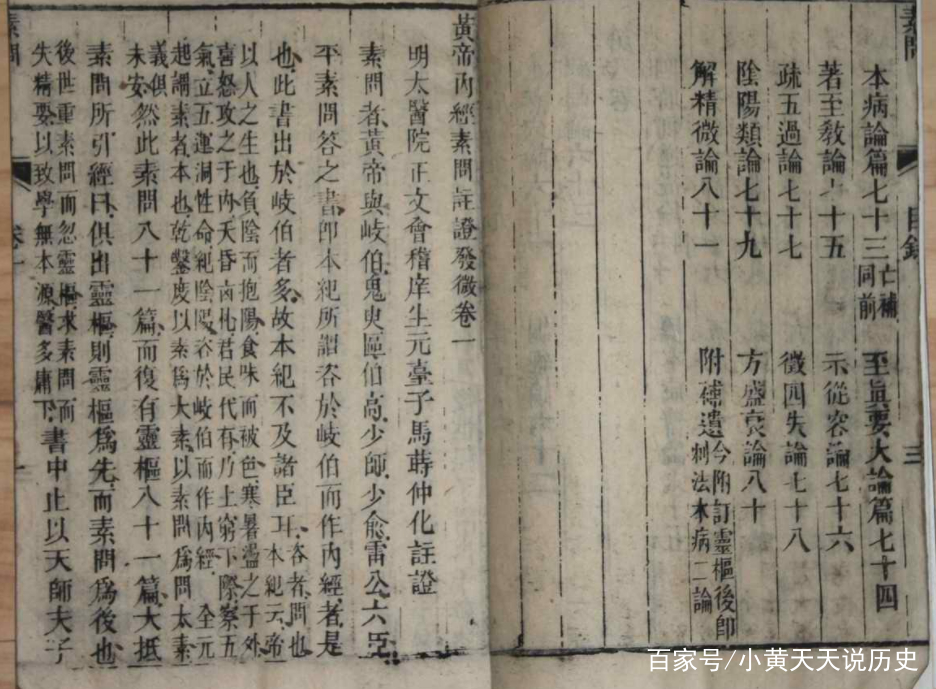 素問
目錄
三
本病論篇七十三
亡補
同前
至眞要大論篇七十四
著至教論七十五 示從容論七十六
疏五過論七十七 徵四失論七十八
陰陽類論七十九 方盛衰論八十
解精微論八十一 附補遺
今附訂靈樞後卽
刺法本病二論
黃帝內經素問註證發微卷一
明太醫院正文會稽庠生元臺子馬蒔仲化註證
素問者黃帝與岐伯鬼臾區伯高少師少愈雷公六臣
平素問答之書卽本紀所謂咨於岐伯而作內經者是
也此書出於岐伯者多故本紀不及諸臣耳
咨者問也
本紀云帝
以人之生也負陰而抱陽食味而被色寒暑盪之于外
喜怒攻之于內夭昏凶札君民代有乃上窮下際察五
氣立五運洞性命紀陰陽咨於岐伯而作內經 全元
起謂素者本也乾鑿度以素爲大素以素問爲問太素
義俱
未安
然此素問八十一篇而復有靈樞八十一篇大抵
素問所引經曰俱出靈樞則靈樞爲先而素問爲後也
後世重素問而忽靈樞求素問而
失精要以致學無本源醫多庸下
書中止以天師夫子
素問
卷一
一
百家号/小黄天天说历史